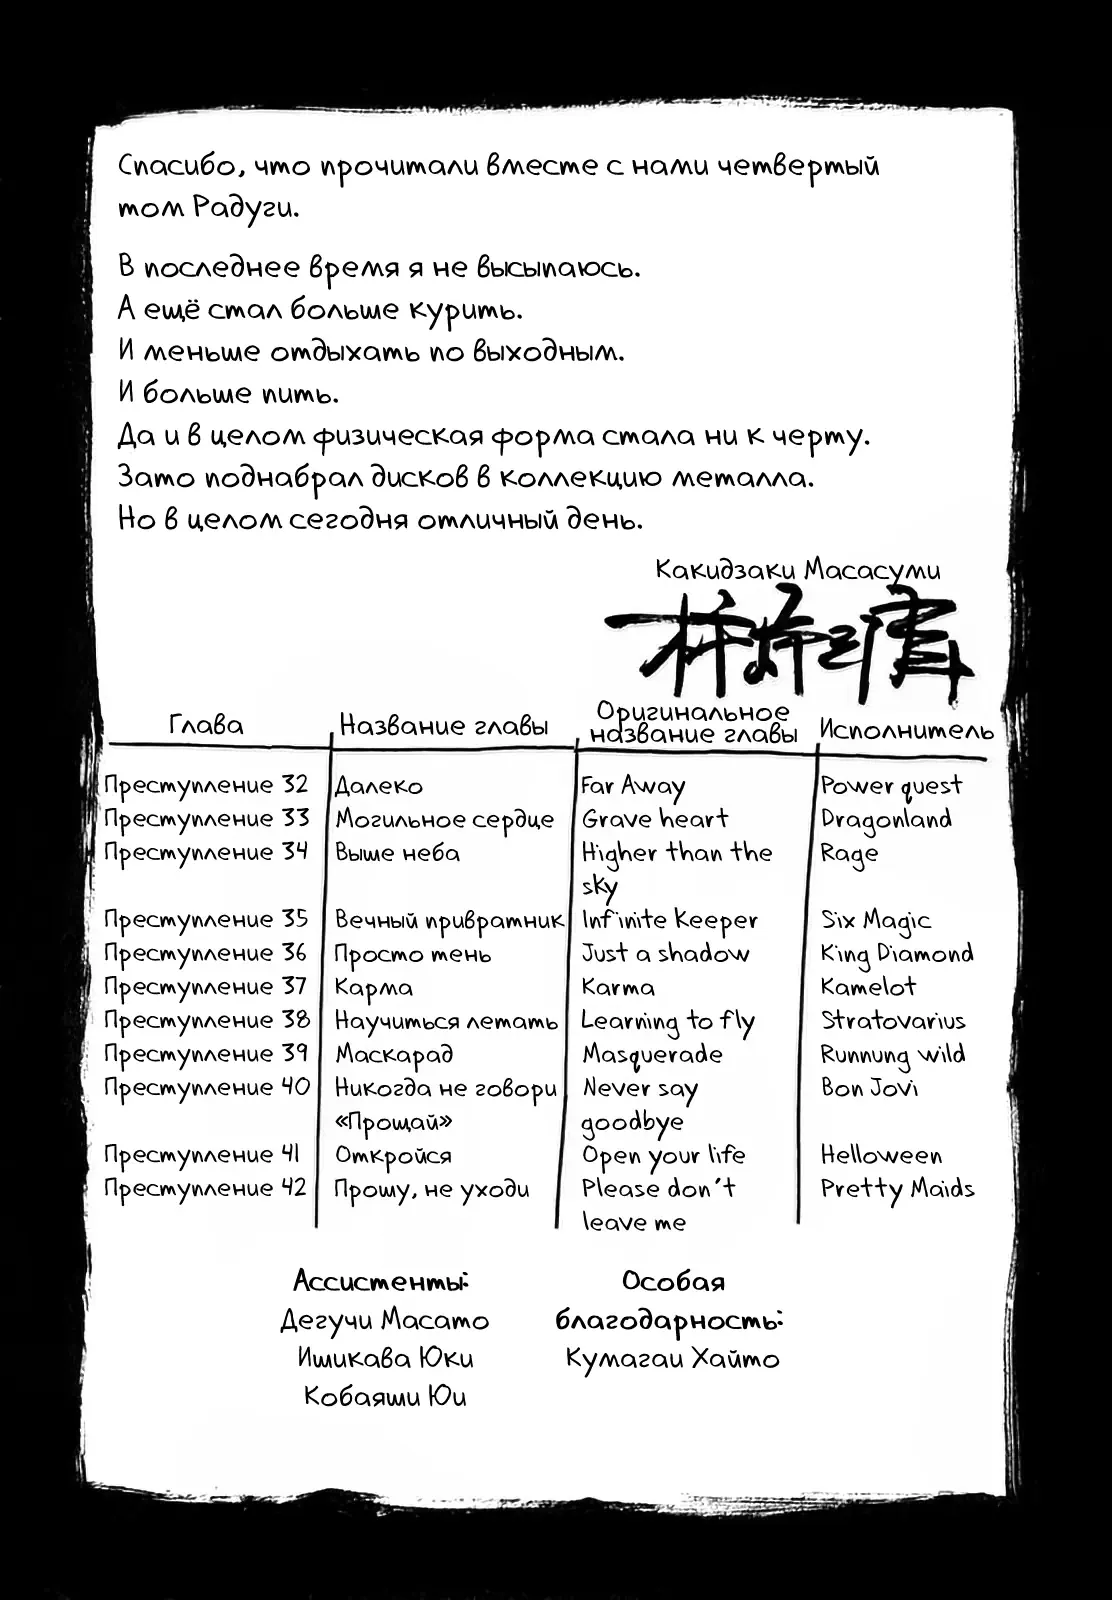 Спасибо, что прочитали вместе с нами четвертый
том Радуги.
В последнее время я не высыпаюсь.
А ещё стал больше курить.
И меньше отдыхать по выходным.
И больше пить.
Да и в целом физическая форма стала ни к черту.
Зато поднабрал дисков в коллекцию металла.
Но в целом сегодня отличный день.
Какидзаки Масасуми
柿崎正澄
Глава Название главы Оригинальное название главы Исполнитель
Преступление 32 Далеко Far Away Power quest
Преступление 33 Могильное сердце Grave heart Dragonland
Преступление 34 Выше неба Higher than the Rage
sky
Преступление 35 Вечный привратник Infinite Keeper Six Magic
Преступление 36 Просто тень Just a shadow King Diamond
Преступление 37 Карма Karma Kamelot
Преступление 38 Научиться летать Learning to fly Stratovarius
Преступление 39 Маскарад Masquerade Runnung wild
Преступление 40 Никогда не говори Never say Bon Jovi
«Прощай» goodbye
Преступление 41 Откройся Open your life Helloween
Преступление 42 Прошу, не уходи Please don't Pretty Maids
leave me
Ассистенты: Особая
Дегучи Масато благодарность:
Ишикава Юки Кумагаи Хайто
Кобаяши Юи